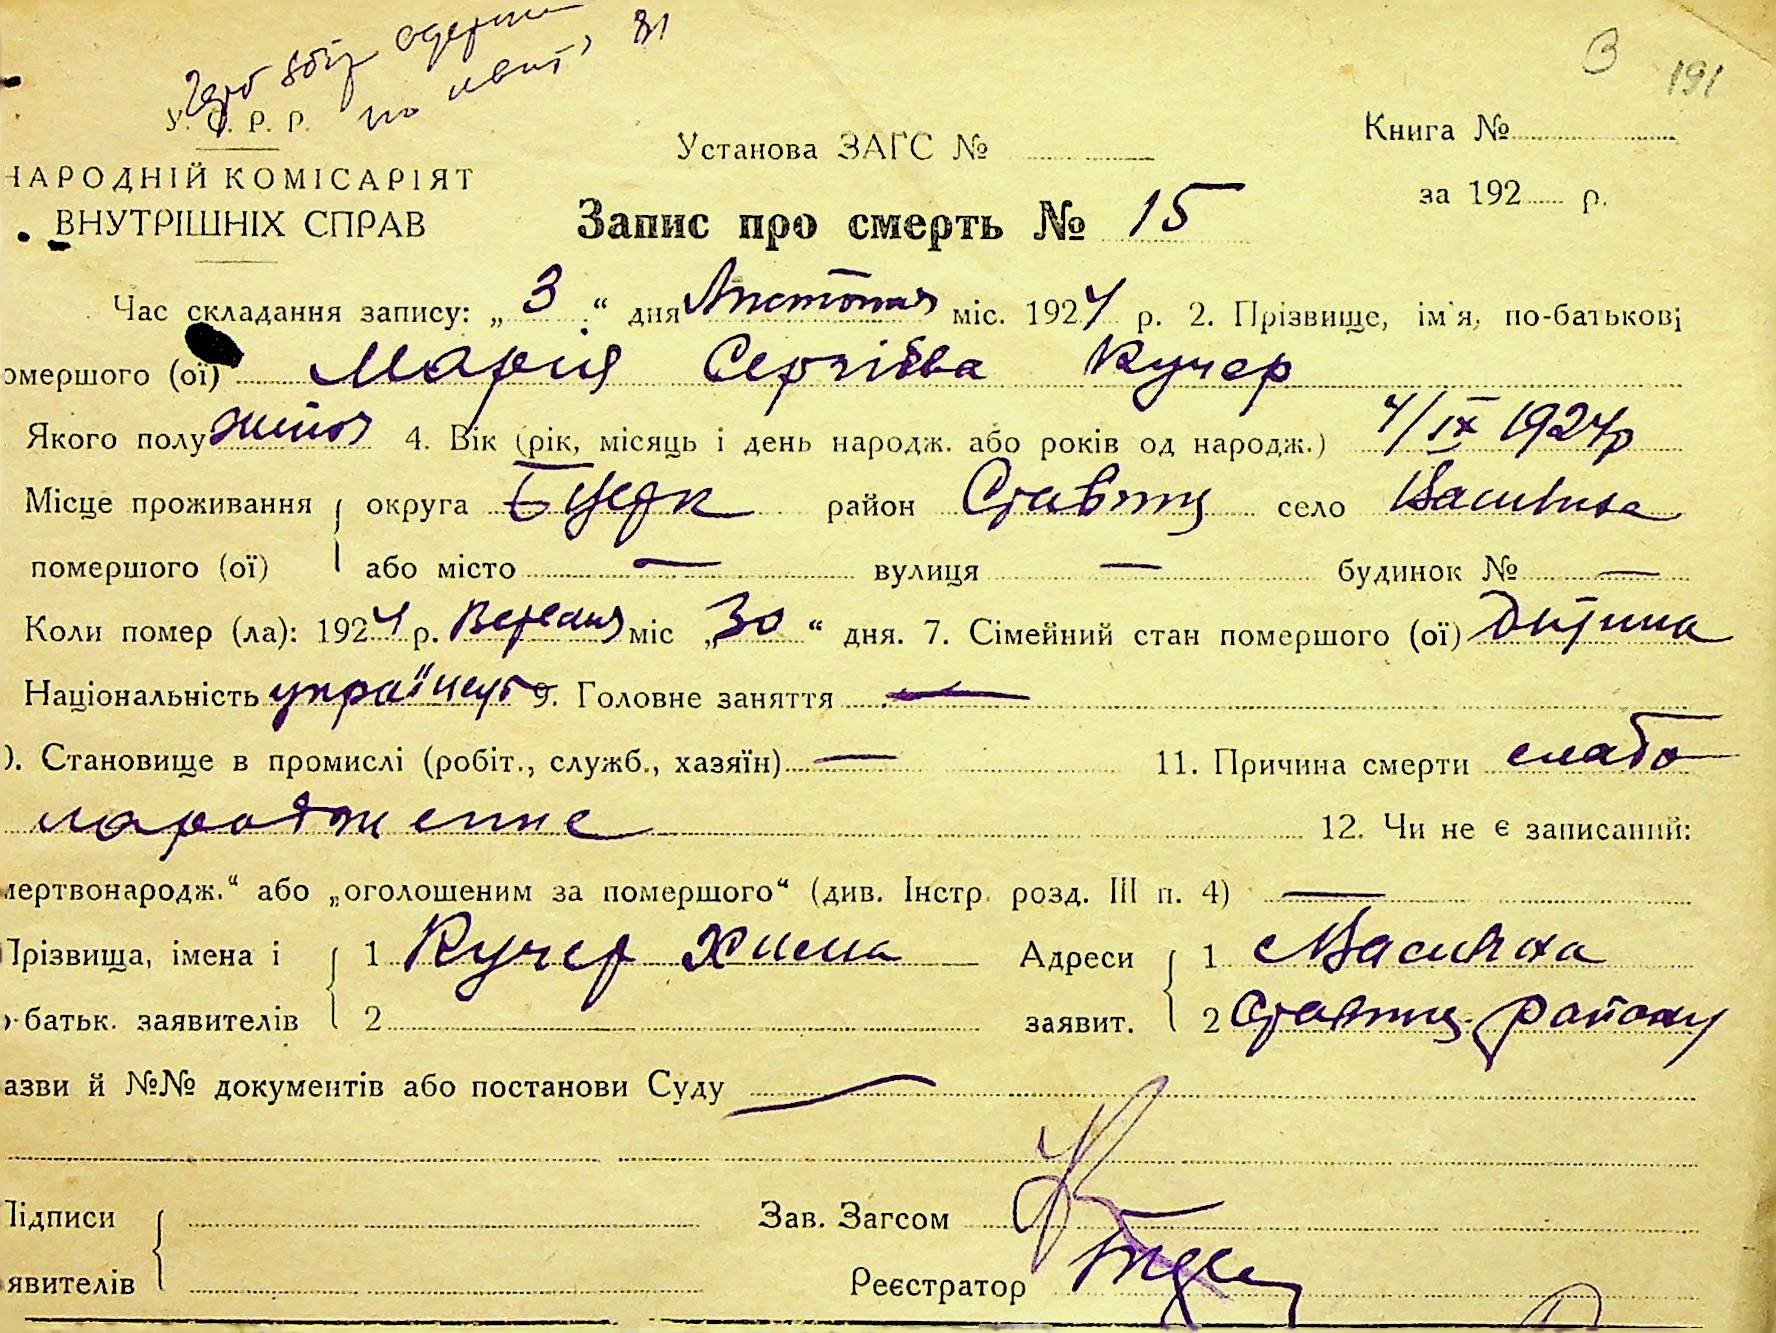 З 191
У. С. Р. Р.
НАРОДНІЙ КОМІСАРІЯТ
ВНУТРІШНІХ СПРАВ
Установа ЗАГС №
Книга №
за 192 р.
Запис про смерть № 15
Час складання запису: „ 3 “ дня Листопада міс. 1924 р. 2. Прізвище, ім'я, по-батькові
омершого (ої) Марія Сергіёва Кучер
Якого полу 4. Вік (рік, місяць і день народж. або років од народж.) 4/IX 1924 р
Місце проживання округа район Ставищ село
помершого (ої) або місто — вулиця — будинок № —
Коли помер (ла): 1924 р. Вересня міс „30“ дня. 7. Сімейний стан помершого (ої) Дитина
Національність 9. Головне заняття —
). Становище в промислі (робіт., служб., хазяїн) — 11. Причина смерти слабо
нарожденне 12. Чи не є записаний:
мертвонародж.“ або „оголошеним за помершого“ (див. Інстр. розд. III п. 4) —
Прізвища, імена і 1 Кучер Хима Адреси 1
о-батьк. заявителів 2 заявит. 2 Ставищ. району
азви й №№ документів або постанови Суду —
Підписи Зав. Загсом
явителів Реєстратор